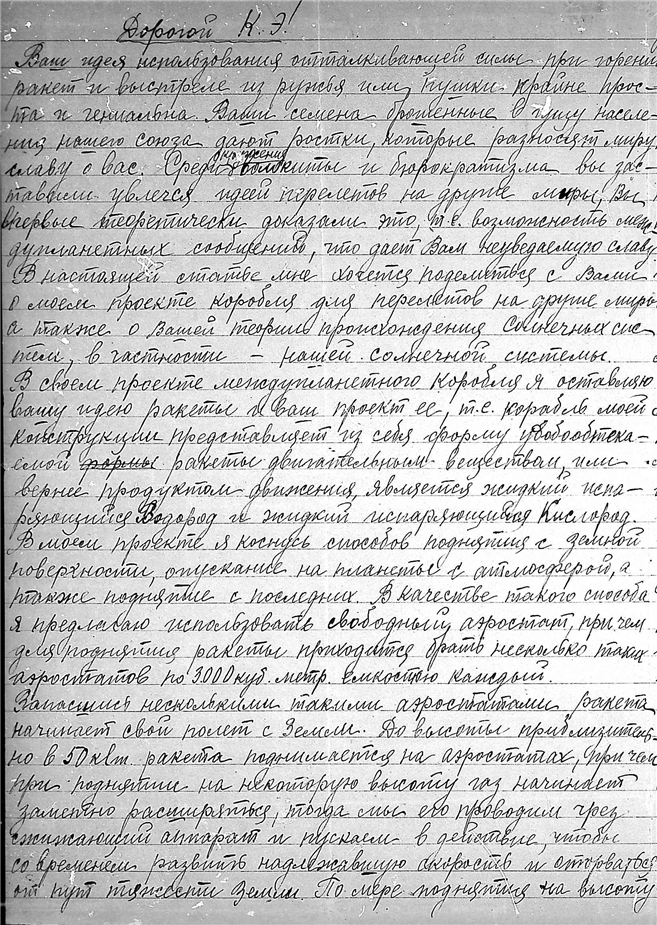 Дорогой К. Э!
Ваш идея использования отталкивающей силы при горении
ракет и выстреле из ружья или пушки крайне прос-
та и гениальна. Ваши семена брошенные в гущу населе-
ния нашего союза дают ростки, которые разносят миру
славу о вас. Среди волокиты и бюрократизма вы зас-
тавили увлечся идеей перелетов на другие миры, Вы
впервые теоретически доказали это, т.е. возможность меж-
дупланетных сообщений, что дает Вам неуведаемую славу
В настоящей статье мне хочется поделиться с Вами
о моем проекте корабля для перелетов на другие миры
а также о Вашей теории происхождения солнечных сис-
тем, в частности – нашей солнечной системы.
В своем проекте междупланетного корабля я оставляю
вашу идею ракеты и ваш проект ее, т.е. корабль моей
конструкции представляет из себя форму удобообтека-
емой формы ракеты двигательным веществом, или
вернее продуктом движения, является жидкий испа-
ряющийся Водород и жидкий испаряющийся Кислород
В моем проекте я коснусь способов поднятия с земной
поверхности, опускание на планеты с атмосферой, а
также поднятие с последних. В качестве такого способа
я предлагаю использовать свободный аэростат, причем
для поднятия ракеты приходится брать несколько таких
аэростатов по 3000 куб. метр. емкостью каждый.
Запасшись несколькими такими аэростатами ракета
начинает свой полет с Земли. До высоты приблизитель-
но в 50 клм. ракета поднимается на аэростатах, причем
при поднятии на некоторую высоту газ начинает
заметно расширяться, тогда мы его проводим чрез
сжижающий аппарат и пускаем в действие, чтобы
со временем развить надлежавшую скорость и оторваться
от пут тяжести Земли. По мере поднятия на высоту